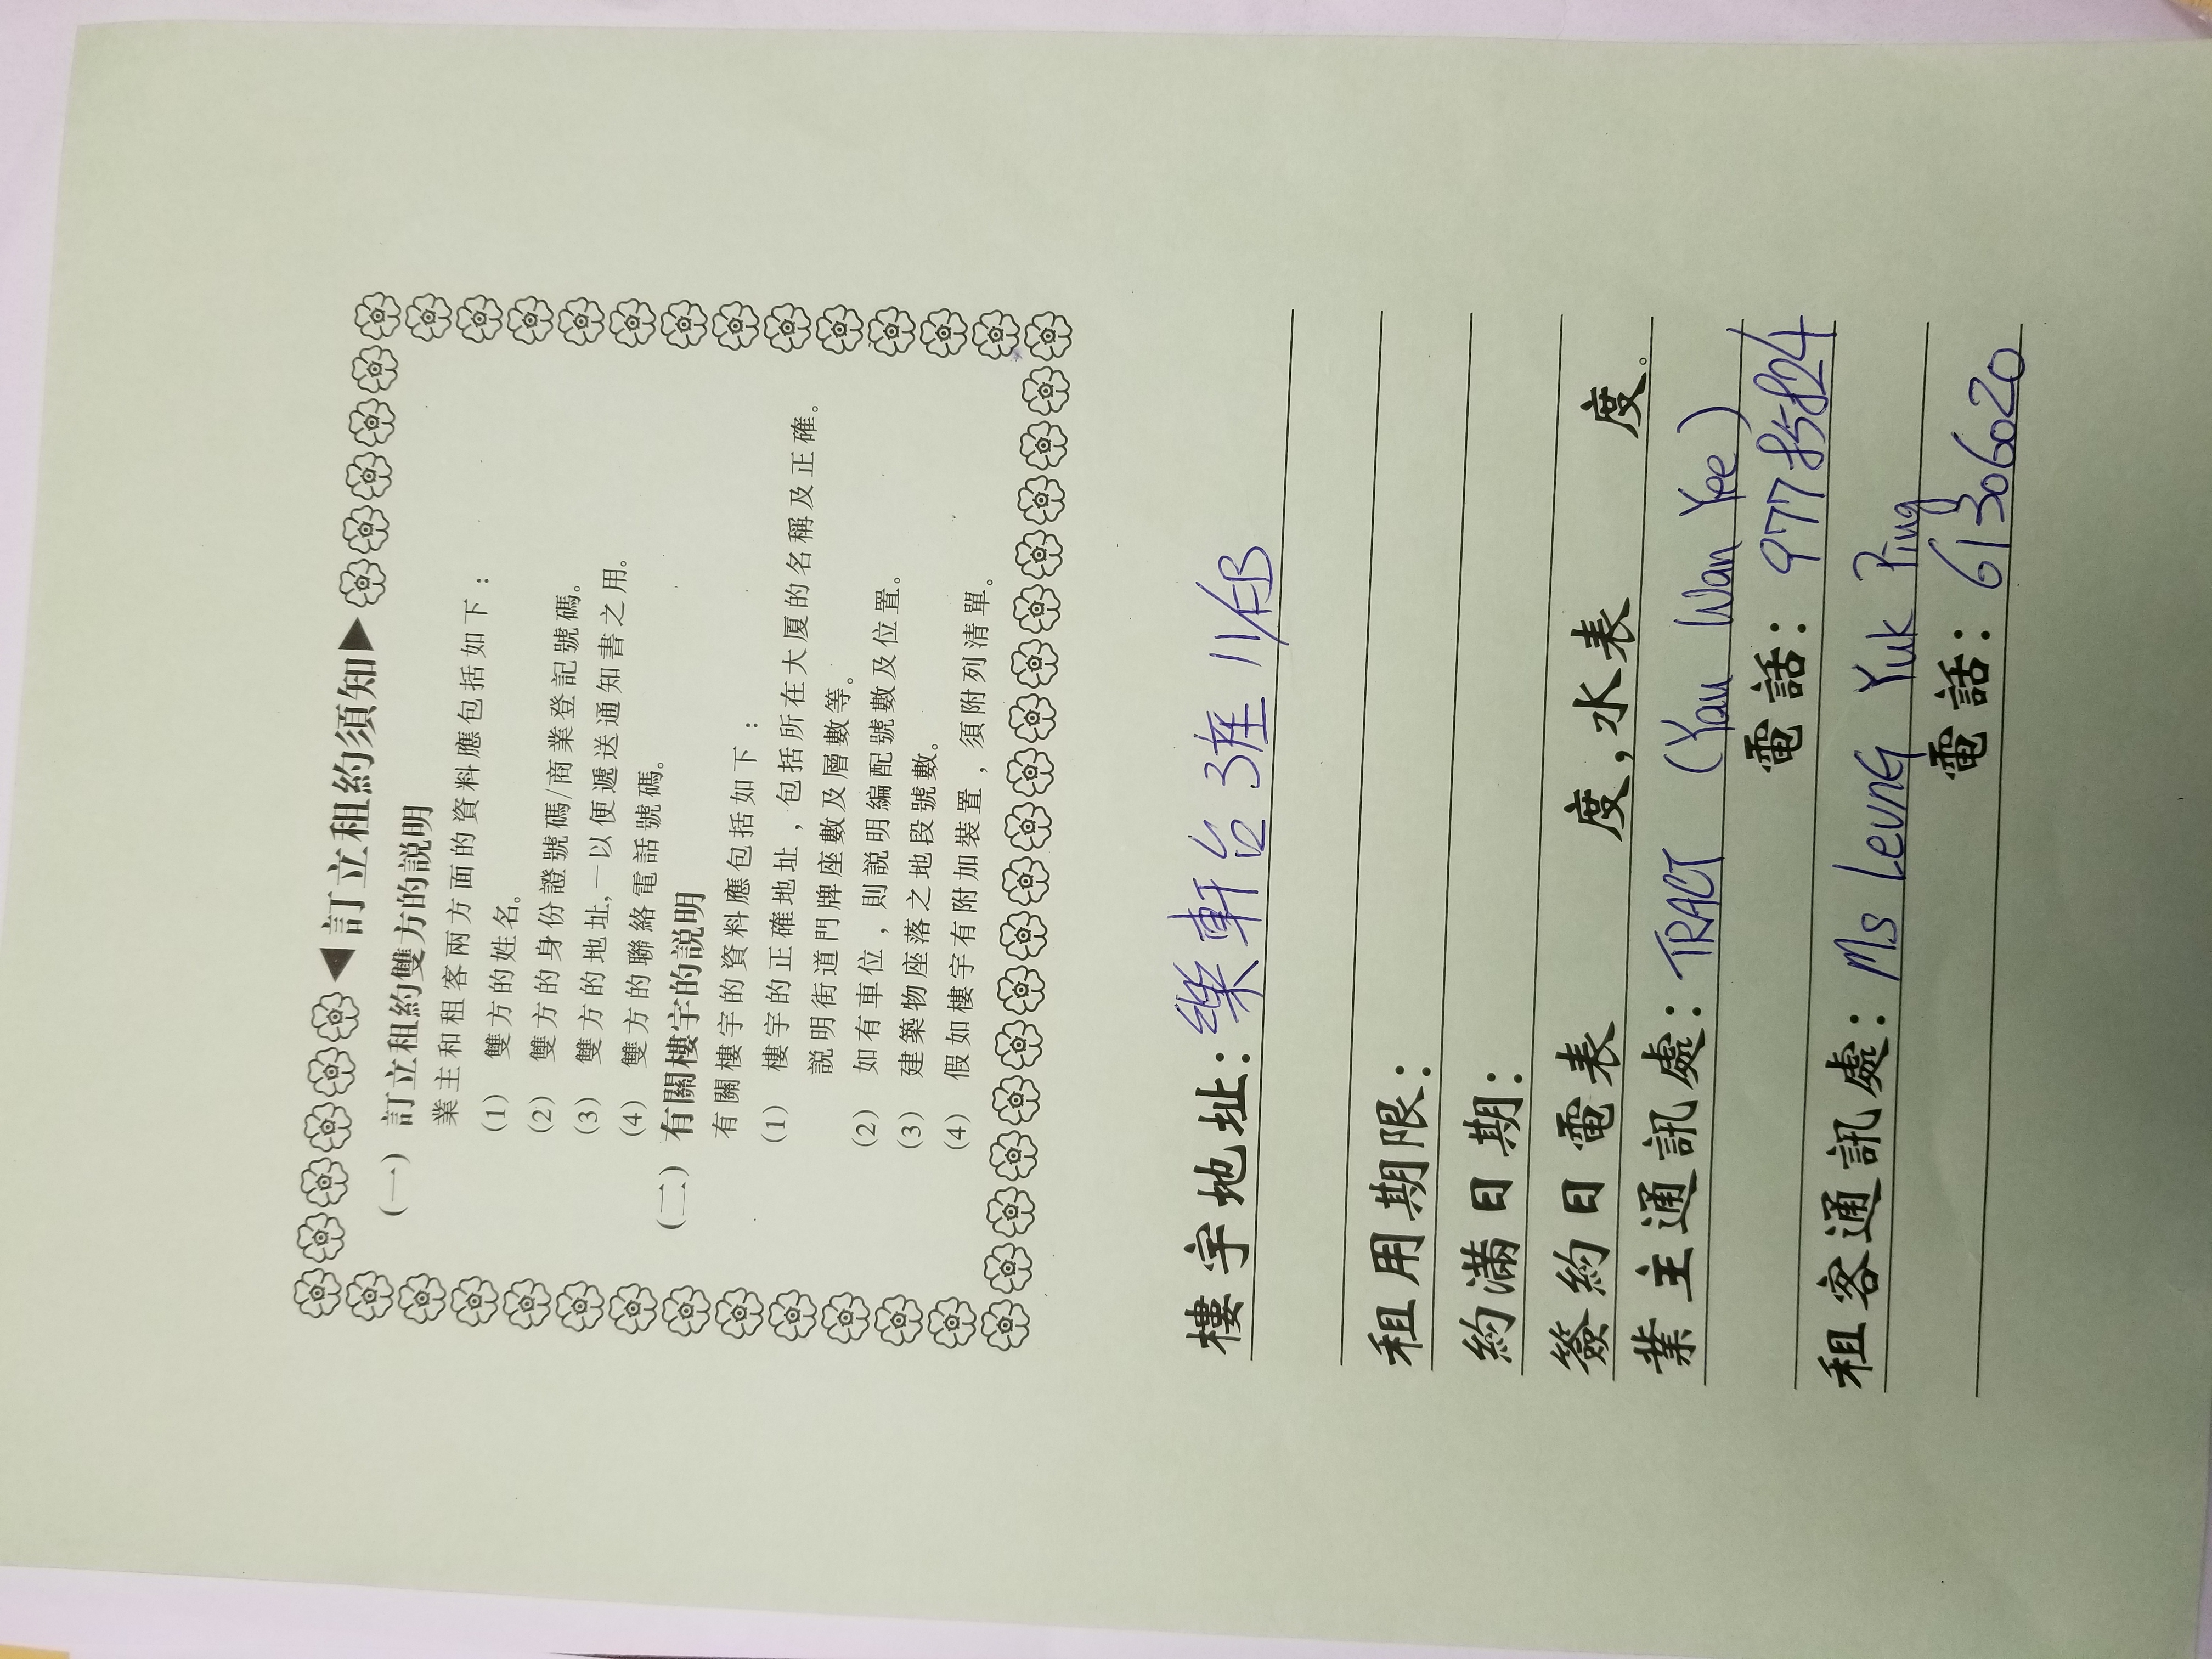 ◀訂立租約須知▶
(一) 訂立租約雙方的説明
業主和租客兩方面的資料應包括如下：
(1) 雙方的姓名。
(2) 雙方的身份證號碼/商業登記號碼。
(3) 雙方的地址,—以便遞送通知書之用。
(4) 雙方的聯絡電話號碼。
(二) 有關樓宇的説明
有關樓宇的資料應包括如下：
(1) 樓宇的正確地址，包括所在大厦的名稱及正確。
説明街道門牌座數及層數等。
(2) 如有車位，則説明編配號數及位置。
(3) 建築物座落之地段號數。
(4) 假如樓宇有附加裝置，須附列清單。
樓宇地址：樂軒台3座11/FB
租用期限：
約滿日期：
簽約日電表 度，水表 度。
業主通訊處：TRACT (Yau Wan Yee)
電話：97785824
租客通訊處：Ms Leung Yuk Ping
電話：61306020